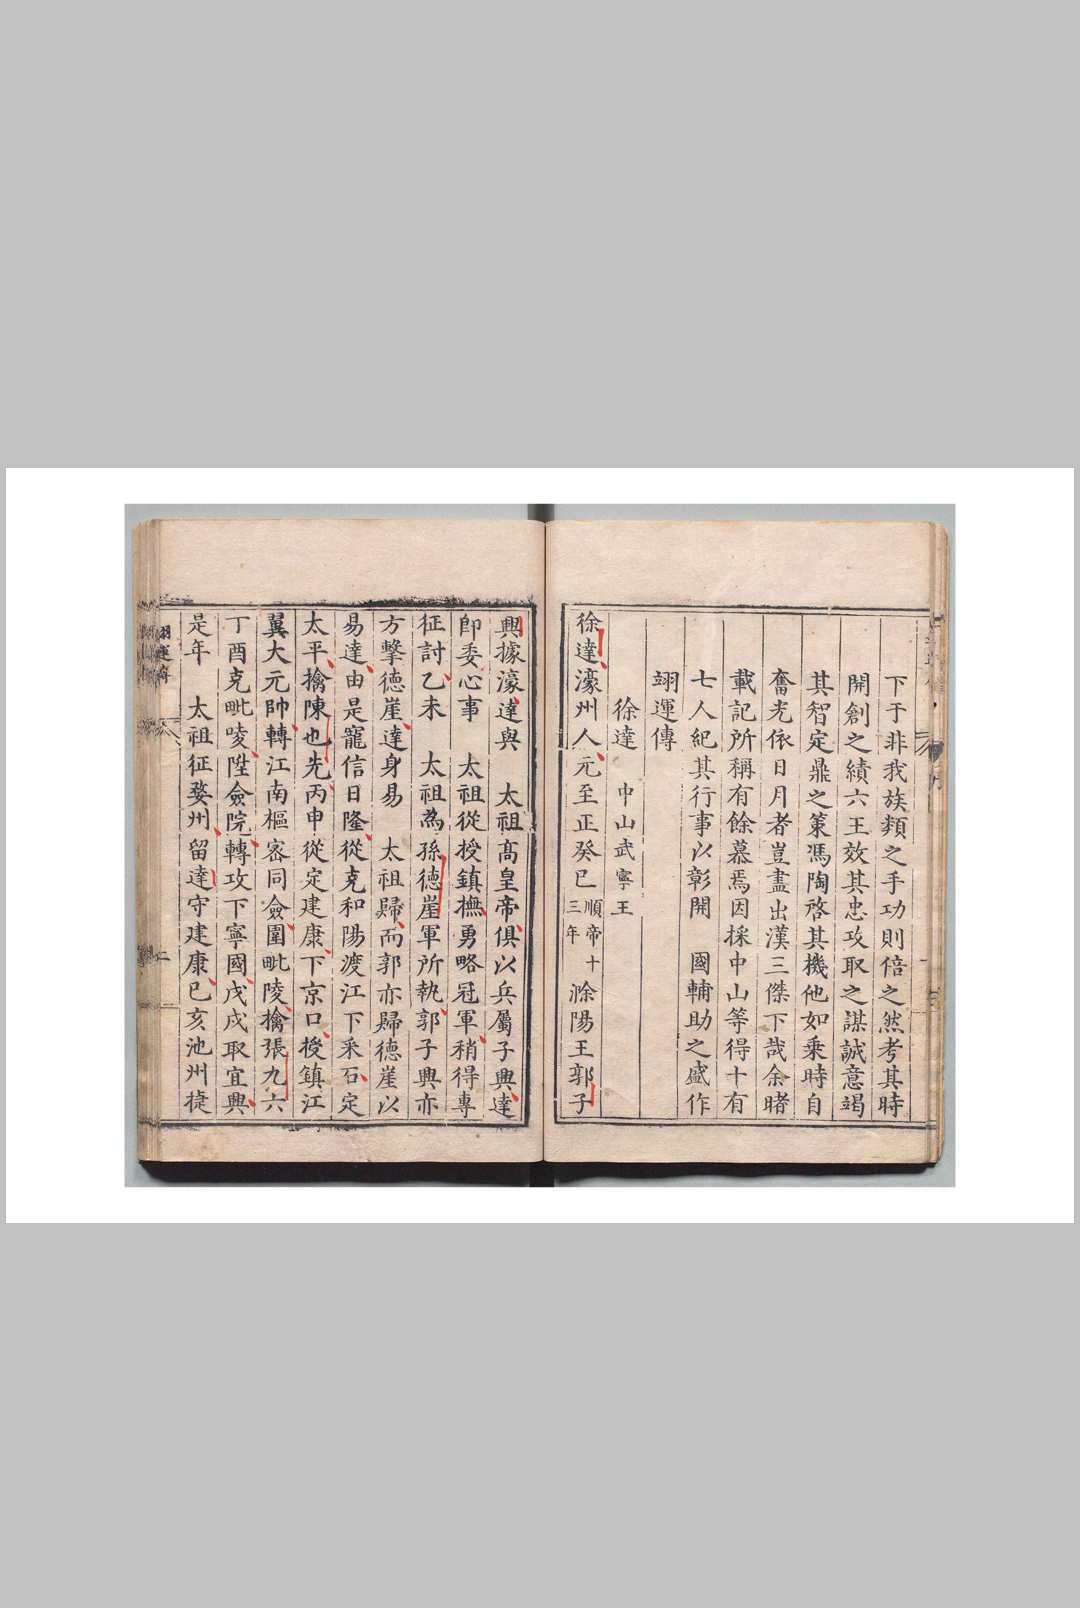 下于非我族類之手功則倍之然考其時
開創之績六王效其忠攻取之謀誠意竭
其智定鼎之策馮陶啓其機他如乘時自
奮光依日月者豈盡出漢三傑下哉余睹
載記所稱有餘慕焉因採中山等得十有
七人紀其行事以彰開　國輔助之盛作
翊運傳
徐達　中山武寧王
徐達濠州人元至正癸巳順帝十三年滁陽王郭子
興據濠達與　太祖高皇帝俱以兵屬子興達
卽委心事　太祖從授鎮撫勇略冠軍稍得專
征討乙未　太祖為孫德崖軍所執郭子興亦
方擊德崖達身易　太祖歸而郭亦歸德崖以
易達由是寵信日隆從克和陽渡江下采石定
太平擒陳也先丙申從定建康下京口授鎮江
翼大元帥轉江南樞密同僉圍毗陵擒張九六
丁酉克毗陵陞僉院轉攻下寧國戊戌取宜興
是年　太祖征婺州留達守建康己亥池州捷
翊運
二